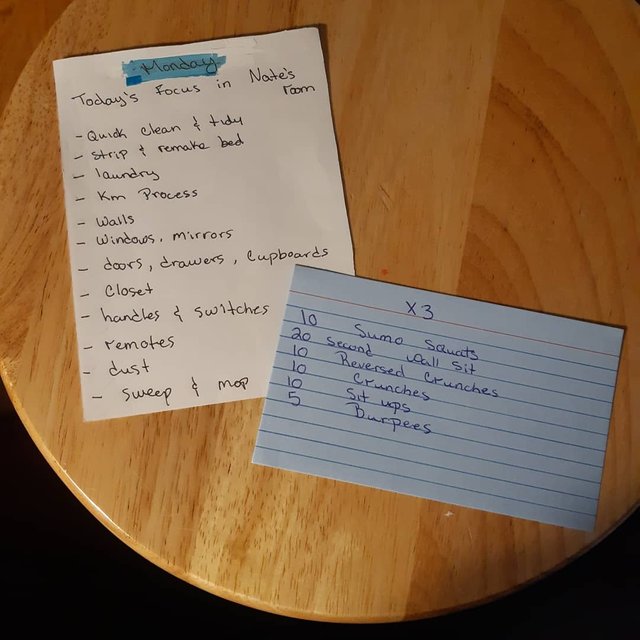 Monday
Today's Focus in Nate's
room
- Quick clean & tidy
- strip & remake bed
- laundry
- Km Process
- Walls
- Windows, mirrors
- doors, drawers, Cupboards
- Closet
- handles & switches
- remotes
- dust
- sweep & mop
X3
10 Sumo Squats
20 second wall sit
10 Reversed Crunches
10 Crunches
10 Sit ups
5 Burpees